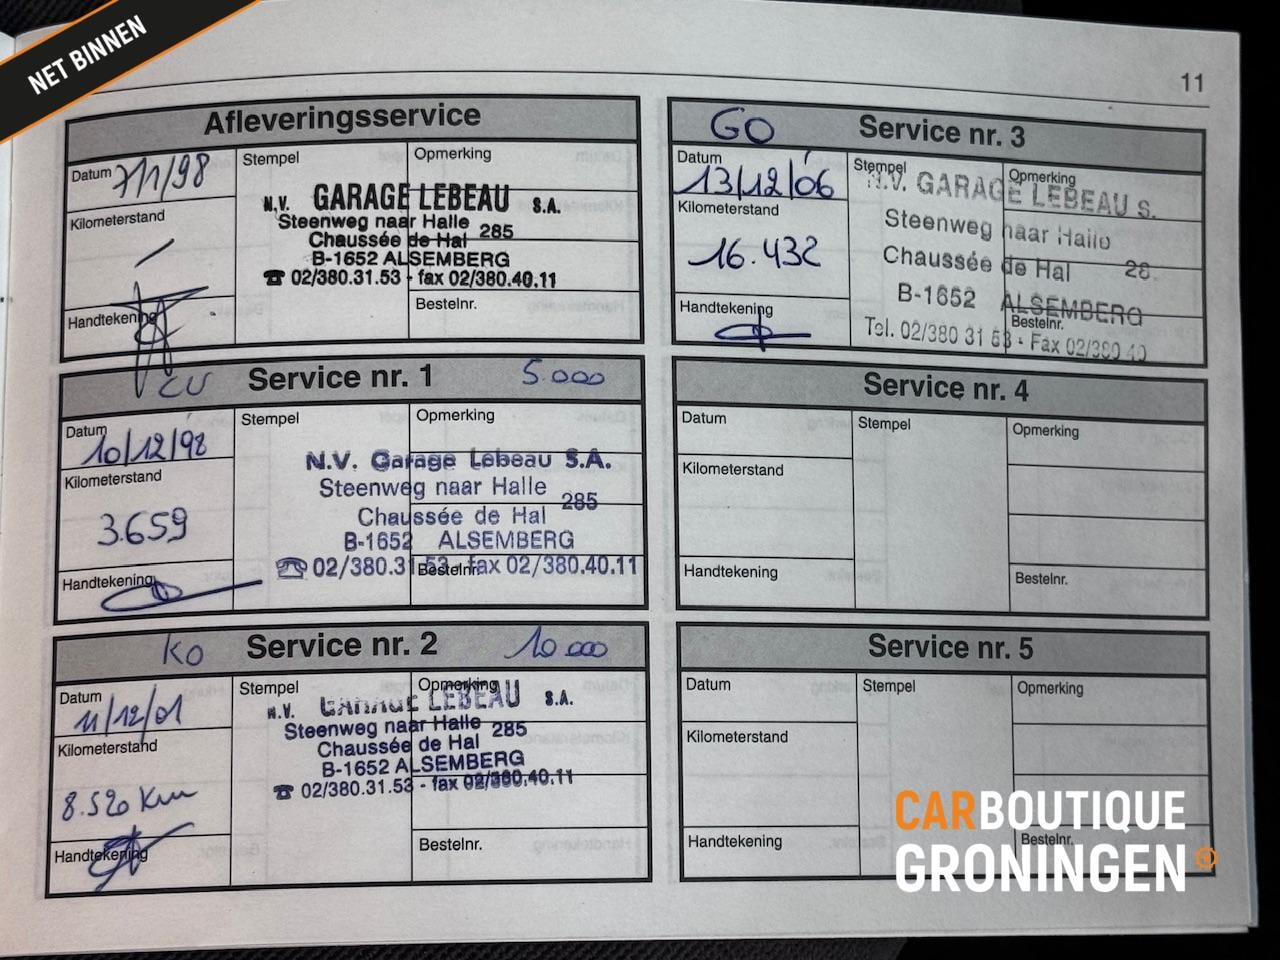 NET BINNEN
11
Afleveringsservice
Datum 7/1/98
Stempel
Opmerking
Kilometerstand
N.V. GARAGE LEBEAU S.A.
Steenweg naar Halle 285
Chaussée de Hal
B-1652 ALSEMBERG
☎ 02/380.31.53 - fax 02/380.40.11
Handtekening
Bestelnr.
CU Service nr. 1 5.000
Datum 10/12/98
Stempel
Opmerking
Kilometerstand
3.659
N.V. Garage Lebeau S.A.
Steenweg naar Halle 285
Chaussée de Hal
B-1652 ALSEMBERG
☎ 02/380.31.53 - fax 02/380.40.11
Handtekening
Bestelnr.
KO Service nr. 2 10.000
Datum 11/12/01
Stempel
Opmerking
Kilometerstand
8.520 Km
N.V. GARAGE LEBEAU S.A.
Steenweg naar Halle 285
Chaussée de Hal
B-1652 ALSEMBERG
☎ 02/380.31.53 - fax 02/380.40.11
Handtekening
Bestelnr.
GO Service nr. 3
Datum 13/12/06
Stempel
Opmerking
Kilometerstand
16.432
N.V. GARAGE LEBEAU S.
Steenweg naar Halle
Chaussée de Hal 28
B-1652 ALSEMBERG
Tel. 02/380 31 53 - Fax 02/380 40
Handtekening
Bestelnr.
Service nr. 4
Datum
Stempel
Opmerking
Kilometerstand
Handtekening
Bestelnr.
Service nr. 5
Datum
Stempel
Opmerking
Kilometerstand
Handtekening
Bestelnr.
CARBOUTIQUE
GRONINGEN